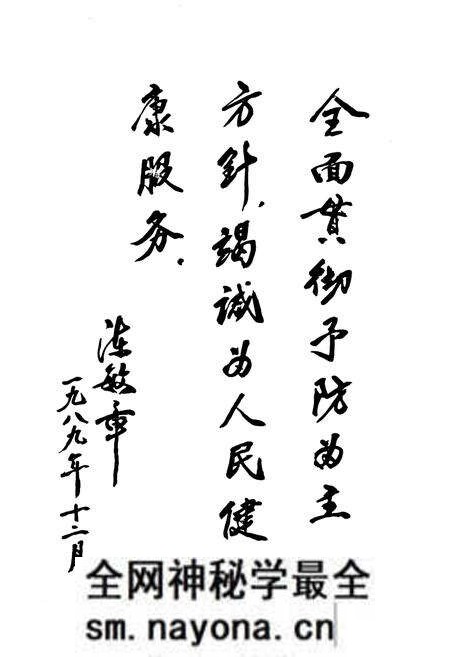 全面貫彻予防为主
方針，竭诚为人民健
康服务．
陈敏章
一九八九年十二月
全网神秘学最全
sm.nayona.cn